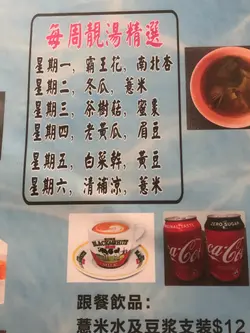 每周靚湯精選
星期一、霸王花、南北杏
星期二、冬瓜、薏米
星期三、茶樹菇、蜜棗
星期四、老黃瓜、眉豆
星期五、白菜幹、黃豆
星期六、清補涼、薏米
BLACK&WHITE
Coca-Cola
ZERO SUGAR
Coca-Cola
跟餐飲品:
薏米水及豆浆支装$12